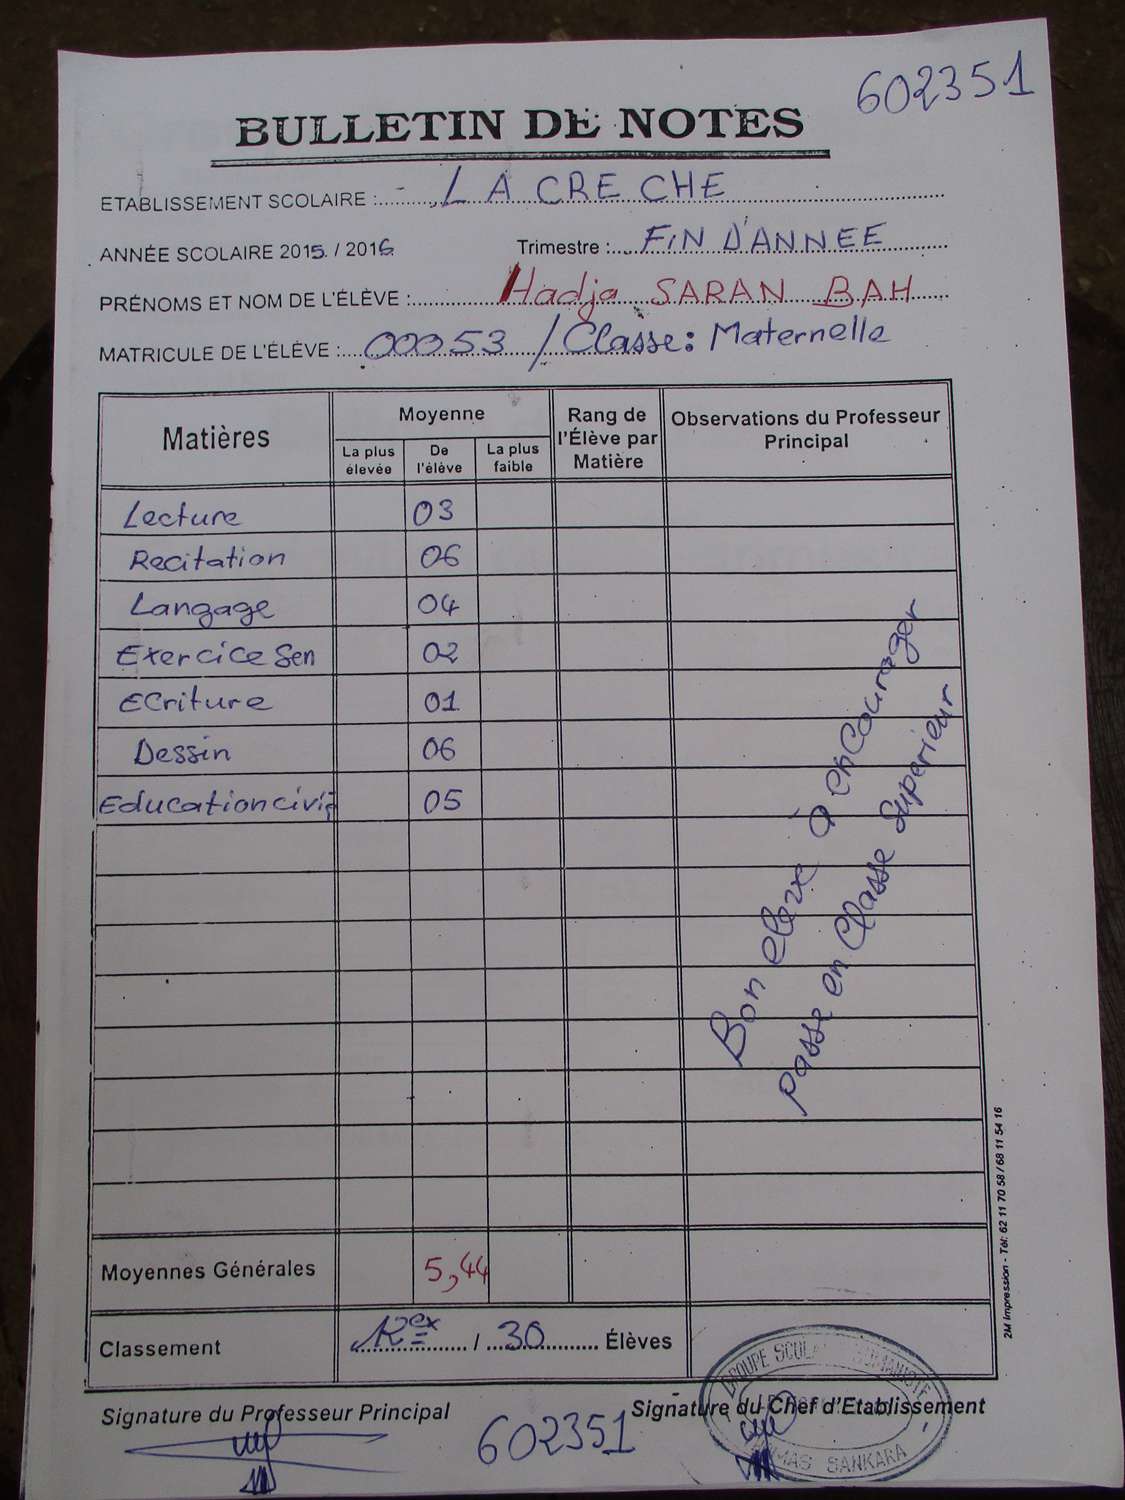 602351
BULLETIN DE NOTES
ETABLISSEMENT SCOLAIRE : LA CRECHE
ANNÉE SCOLAIRE 2015 / 2016 Trimestre : FIN D'ANNEE
PRÉNOMS ET NOM DE L'ÉLÈVE : Hadja SARAN BAH
MATRICULE DE L'ÉLÈVE : 00053 / Classe: Maternelle
Matières Moyenne Rang de l'Élève par Matière Observations du Professeur Principal
La plus élevée De l'élève La plus faible
Lecture 03
Recitation 06
Langage 04
Exercice Sen 02
Ecriture 01
Dessin 06
Education civi 05
Bon elève à encourager
passe en Classe Superieur
Moyennes Générales 5,44
Classement 12ex / 30 Élèves
Signature du Professeur Principal Signature du Chef d'Etablissement
602351
GROUPE SCOLAIRE
SANKARA
2M Impression - Tél: 62 11 70 58 / 68 11 54 16